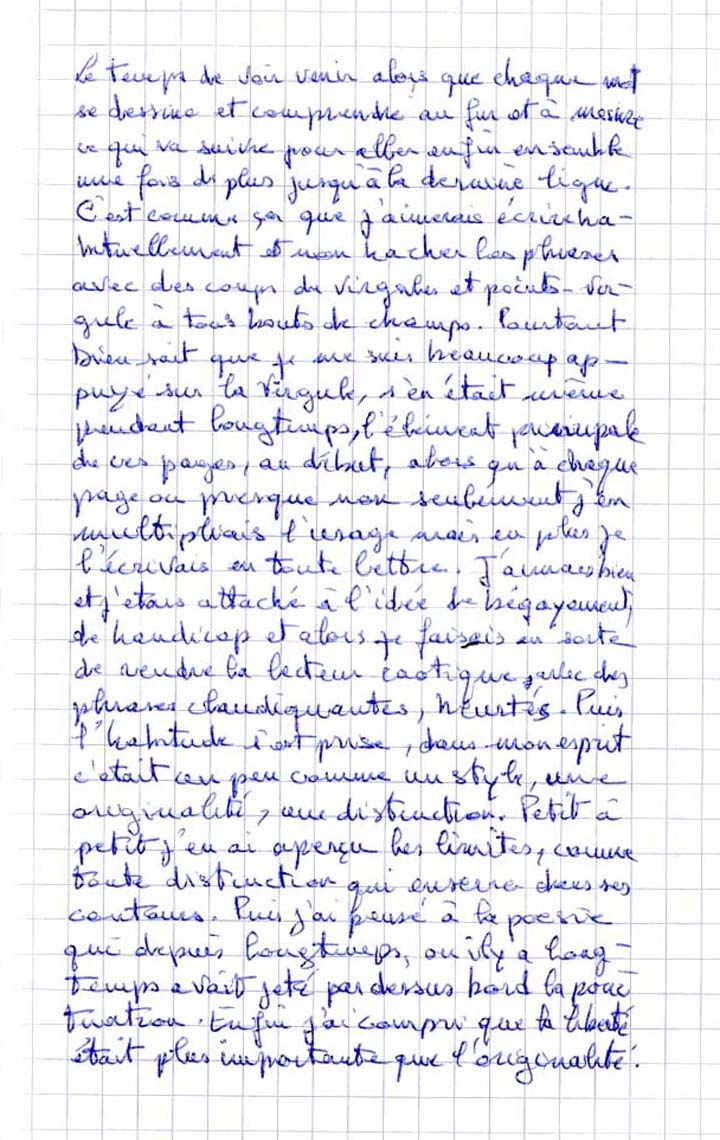 Le temps de voir venir alors que chaque mot
se dessine et comprendre au fur et à mesure
ce qui va suivre pour aller enfin ensemble
une fois de plus jusqu'à la dernière ligne.
C'est comme ça que j'aimerais écrire ha-
bituellement et non hacher les phrases
avec des coups de virgules et points-vir-
gule à tous bouts de champs. Pourtant
Dieu sait que je me suis beaucoup ap-
puyé sur la virgule, s'en était même
pendant longtemps, l'élément principale
de ces pages, au début, alors qu'à chaque
page ou presque non seulement j'en
multipliais l'usage mais en plus je
l'écrivais en toute lettre. J'aimais bien
et j'étais attaché à l'idée de bégayement,
de handicap et alors je faisais en sorte
de rendre la lecteur caotique, avec des
phrases claudiquantes, heurtés. Puis
l'habitude s'est prise, dans mon esprit
c'était un peu comme un style, une
originalité, une distinction. Petit à
petit j'en ai aperçu les limites, comme
toute distinction qui enserre dans ses
contours. Puis j'ai pensé à la poésie
qui depuis longtemps, ou il y a long-
temps avait jeté par dessus bord la ponc
tuation. Enfin j'ai compri que la liberté
était plus importante que l'originalité.